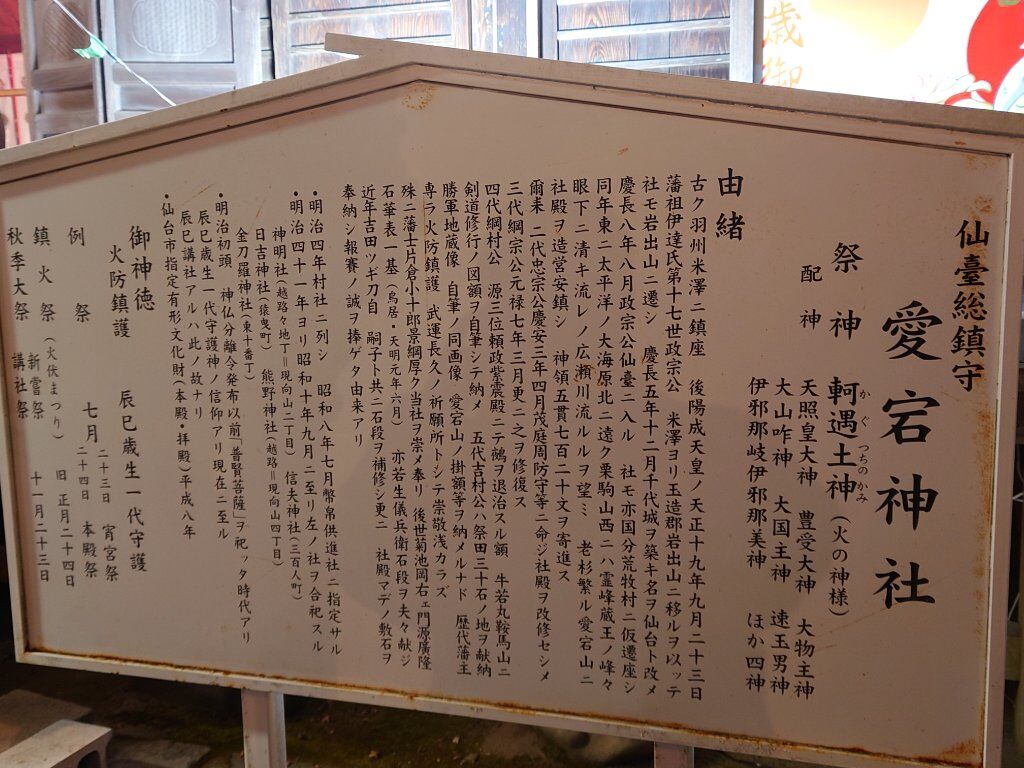 仙臺総鎮守
愛宕神社
祭神 軻遇土神(火の神様)
かぐつちのかみ
配神 天照皇大神 豊受大神 大物主神
大山咋神 大国主神 速玉男神
伊邪那岐伊邪那美神 ほか四神
由緒
古ク羽州米澤ニ鎮座 後陽成天皇ノ天正十九年九月二十三日
藩祖伊達氏第十七世政宗公 米澤ヨリ玉造郡岩出山ニ移ルヲ以ッテ
社モ岩出山ニ遷シ 慶長五年十二月千代城ヲ築キ名ヲ仙台ト改メ
慶長八年八月政宗公仙臺ニ入ル 社モ亦国分荒牧村ニ仮遷座シ
同年東ニ太平洋ノ大海原北ニ遠ク栗駒山西ニハ霊峰蔵王ノ峰々
眼下ニ清キ流レノ広瀬川流ルルヲ望ミ 老杉繁ル愛宕山ニ
社殿ヲ造営安鎮シ 神領五貫七百二十文ヲ寄進ス
爾来 二代忠宗公慶安三年四月茂庭周防守等ニ命ジ社殿ヲ改修セシメ
三代綱宗公元禄七年三月更ニ之ヲ修復ス
四代綱村公 源三位頼政紫震殿ニテ鵺ヲ退治スル額 牛若丸鞍馬山ニ
剣道修行ノ図額ヲ自筆シテ納メ 五代吉村公ハ祭田三十石ノ地ヲ献納
勝軍地蔵像 自筆ノ同画像 愛宕山ノ掛額等ヲ納メルナド 歴代藩主
専ラ火防鎮護 武運長久ノ祈願所トシテ崇敬浅カラズ
殊ニ藩士片倉小十郎景綱厚ク当社ヲ崇メ奉リ 後世菊池岡右ェ門源廣隆
石華表一基(鳥居・天明元年六月) 亦若生儀兵衛石段ヲ夫々献ジ
近年吉田ツギ刀自 嗣子ト共ニ石段ヲ補修シ更ニ 社殿マデノ敷石ヲ
奉納シ報賽ノ誠ヲ捧ゲタ由来アリ
・明治四年村社ニ列シ 昭和八年七月幣帛供進社ニ指定サル
・明治四十一年ヨリ昭和十年九月ニ至リ左ノ社ヲ合祀スル
神明社(越路々地丁=現向山二丁目) 信夫神社(三百人町)
日吉神社(猿曳町) 熊野神社(越路=現向山四丁目)
金刀羅神社(東十番丁)
・明治初頭 神仏分離令発布以前「普賢菩薩」ヲ祀ッタ時代アリ
辰巳歳生一代守護神ノ信仰アリ現在ニ至ル
辰巳講社アルハ此ノ故ナリ
・仙台市指定有形文化財(本殿・拝殿)平成八年
御神徳
火防鎮護 辰巳歳生一代守護
例祭 七月 二十三日 宵宮祭
二十四日 本殿祭
鎮火祭(火伏まつり) 旧正月二十四日
秋季大祭 新嘗祭 十一月二十三日
講社祭
歳御